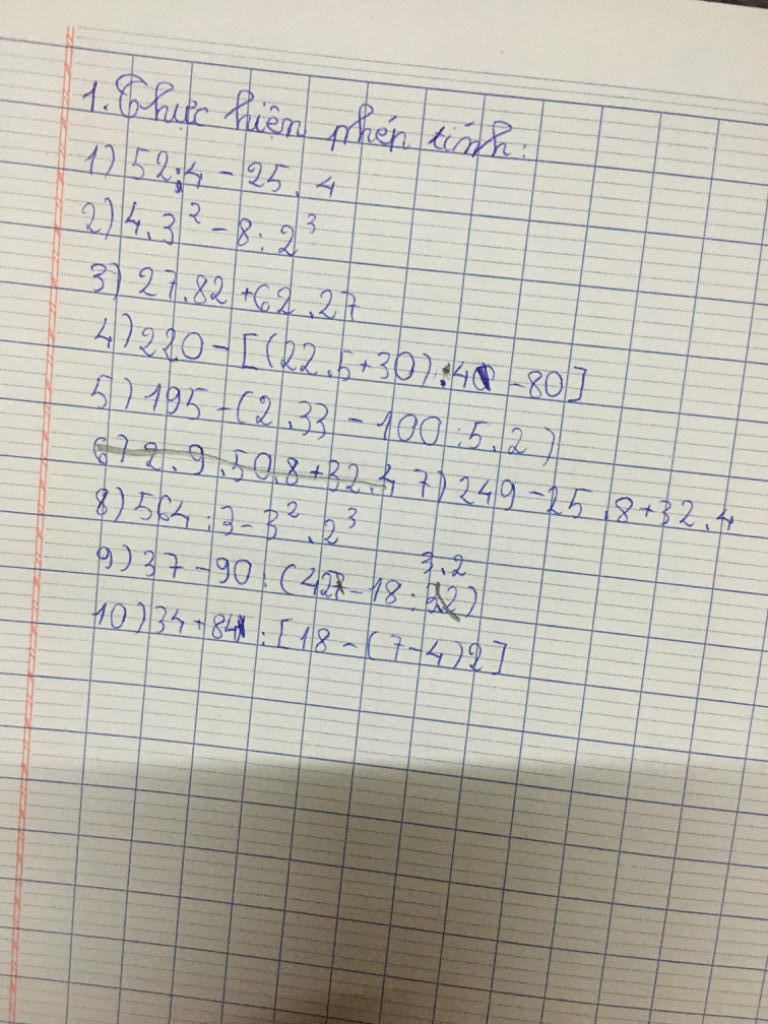 1. Thực hiện phép tính:
1) 52:4 - 25.4
2) 4.3² - 8:2³
3) 27.82 + 62.27
4) 220 - [(22.5+30):4 - 80]
5) 195 - (2.33 - 100:5.2)
6) 2.9.50.8+32.4 7) 249 - 25.8 + 32.4
8) 564:3 - 3².2³
9) 37 - 90:(42 - 18:3.2)
10) 34 + 84:[18 - (7-4)2]